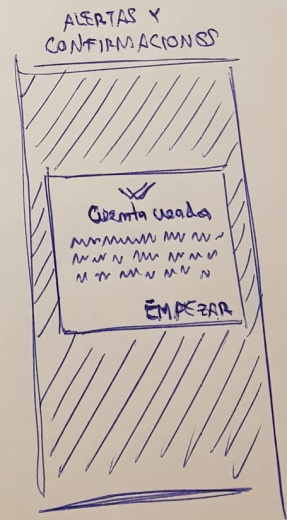 ALERTAS Y
CONFIRMACIONES
Cuenta creada
EMPEZAR